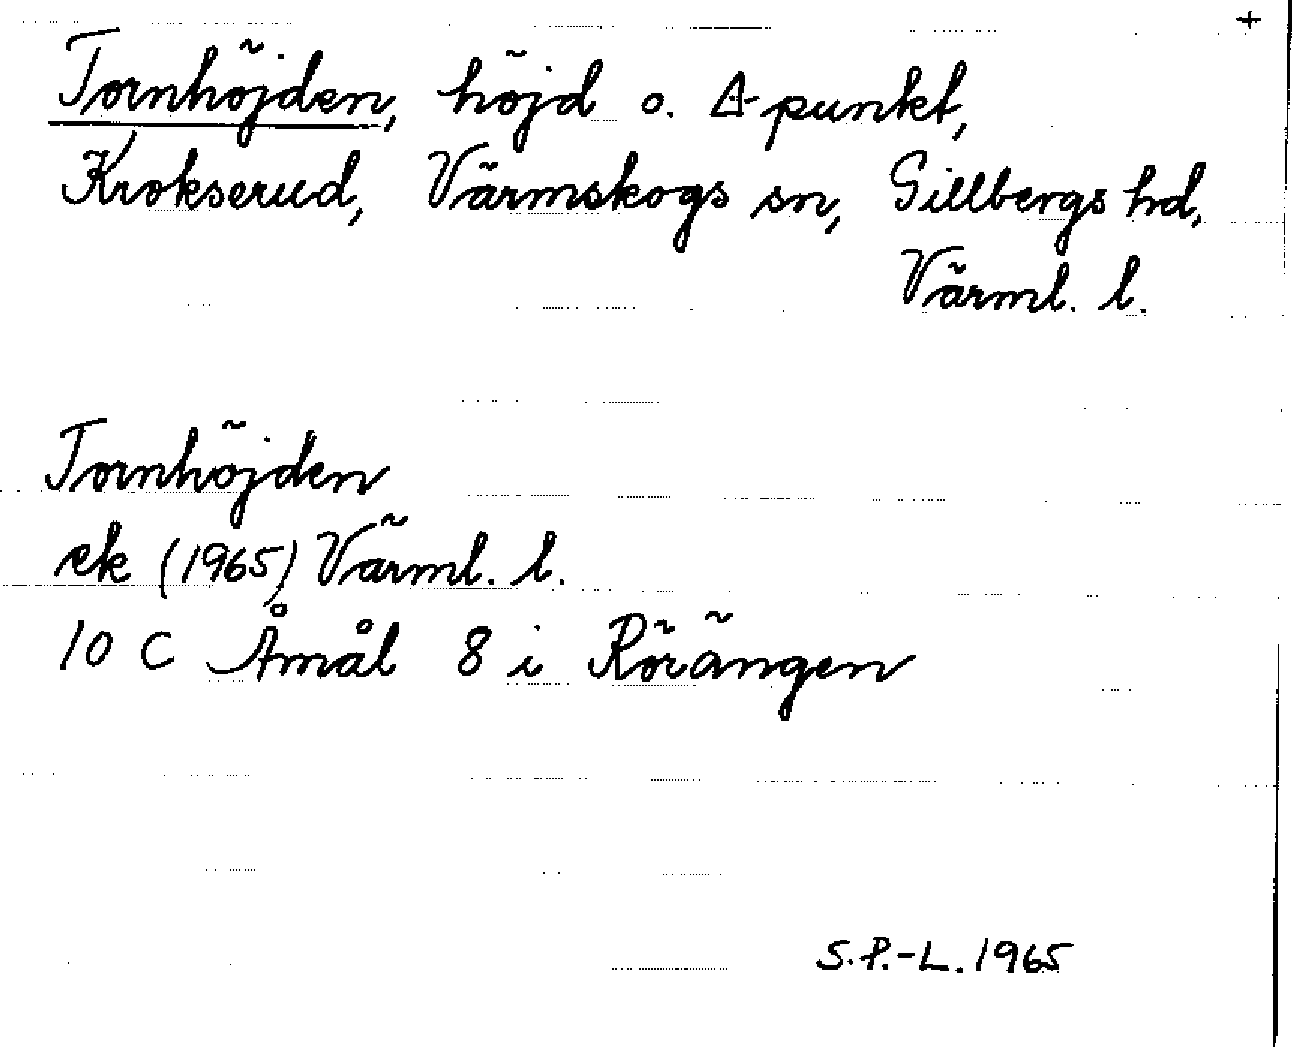 +
Tornhöjden, höjd o. △-punkt,
Krokserud, Värmskogs sn, Gillbergs hd,
Värml. l.
Tornhöjden
ek (1965) Värml. l.
10 C Åmål 8 i Rörängen
S.P.-L. 1965